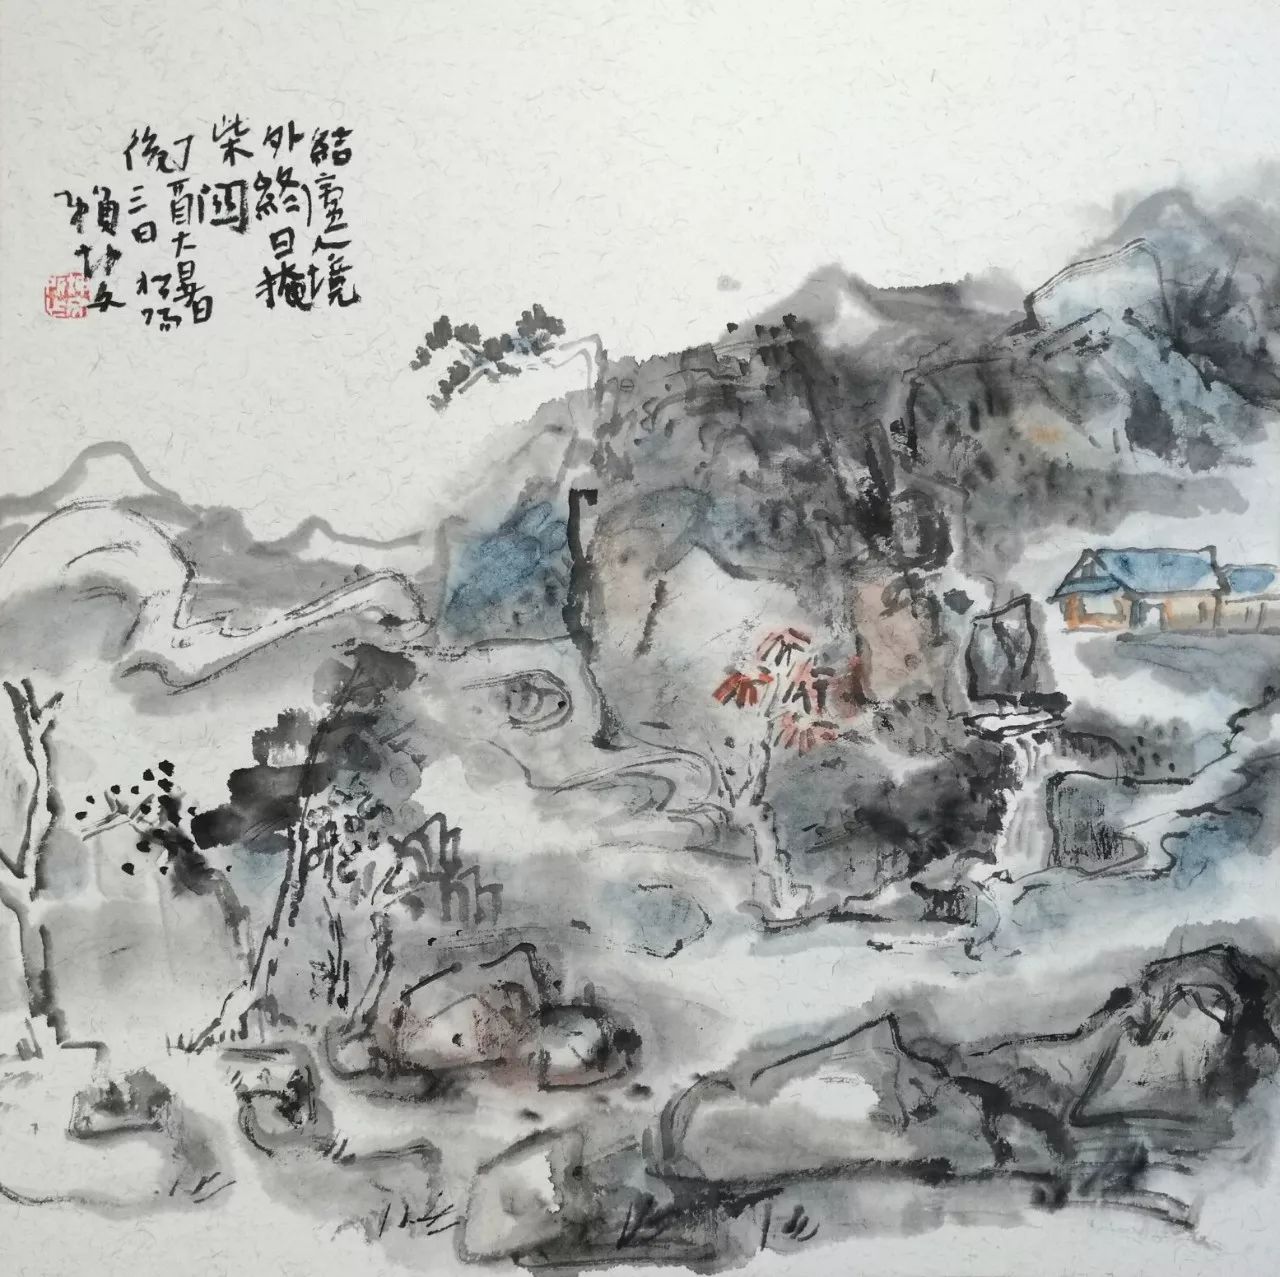 結廬人境
外終日掩
柴關
丁酉大暑
後三日